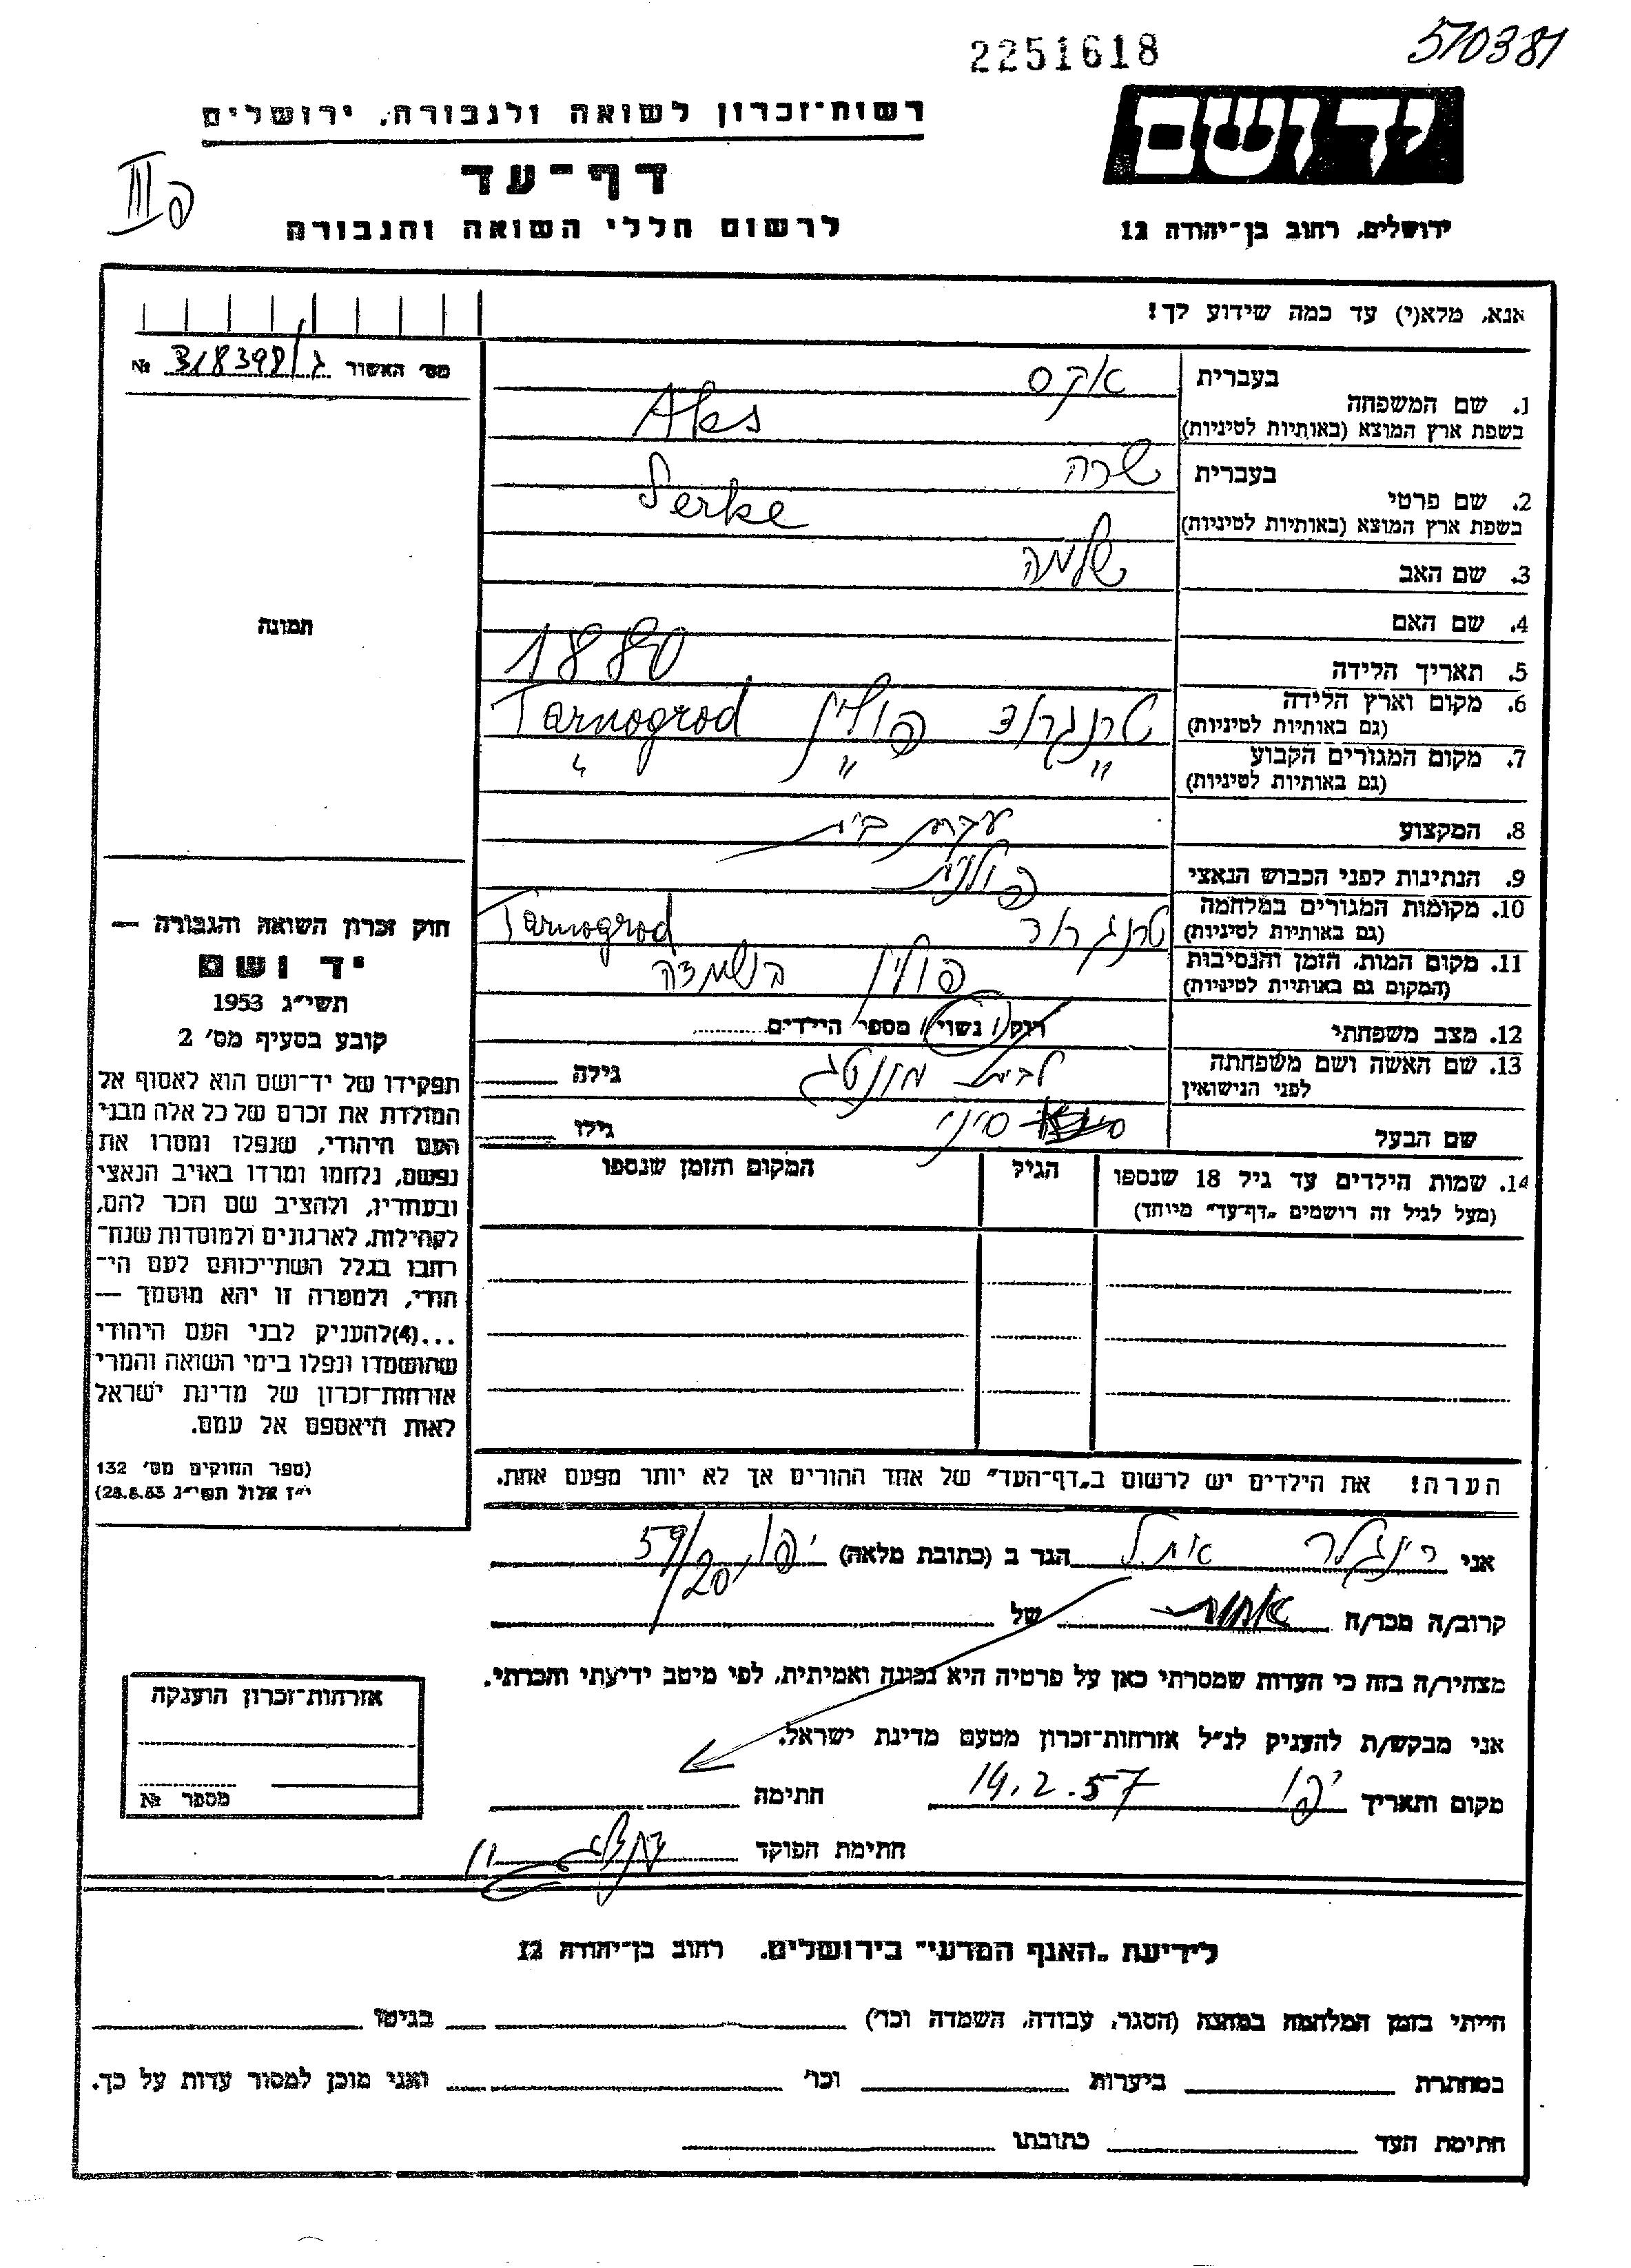 2251618
510381
רשות־זכרון לשואה ולגבורה, ירושלים
יד ושם
דף־עד
III פ
לרשום חללי השואה והגבורה
ירושלים, רחוב בן־יהודה 12
אנא, מלא(י) עד כמה שידוע לך!
מס׳ האשור ג/318398 №
בעברית אקס
1. שם המשפחה
בשפת ארץ המוצא (באותיות לטיניות) Aks
בעברית שרה
2. שם פרטי
בשפת ארץ המוצא (באותיות לטיניות) Serke
3. שם האב שלמה
4. שם האם
תמונה
5. תאריך הלידה 1880
6. מקום וארץ הלידה
(גם באותיות לטיניות) טרנגרוד פולין Tarnogrod
7. מקום המגורים הקבוע " " "
(גם באותיות לטיניות)
8. המקצוע עקרת בית
9. הנתינות לפני הכבוש הנאצי פולנית
10. מקומות המגורים במלחמה
(גם באותיות לטיניות) טרנגרוד Tarnogrod
11. מקום המות, הזמן והנסיבות
(המקום גם באותיות לטיניות) פולין בהשמדה
12. מצב משפחתי רוק/ נשוי/ מספר הילדים
13. שם האשה ושם משפחתה
לפני הנישואין לבית מונטג גילה
שם הבעל סיני גילו
14. שמות הילדים עד גיל 18 שנספו הגיל המקום והזמן שנספו
(מעל לגיל זה רושמים „דף־עד" מיוחד)
חוק זכרון השואה והגבורה —
יד ושם
תשי״ג 1953
קובע בסעיף מס׳ 2
תפקידו של יד־ושם הוא לאסוף אל
המולדת את זכרם של כל אלה מבני
העם היהודי, שנפלו ומסרו את
נפשם, נלחמו ומרדו באויב הנאצי
ובעוזריו, ולהציב שם וזכר להם,
לקהילות, לארגונים ולמוסדות שנח־
רבו בגלל השתייכותם לעם הי־
הודי, ולמטרה זו יהא מוסמך —
...(4)להעניק לבני העם היהודי
שהושמדו ונפלו בימי השואה והמרי
אזרחות־זכרון של מדינת ישראל
לאות היאספם אל עמם.
(ספר החוקים מס׳ 132
י״ז אלול תשי״ג 28.8.53)
הערה! את הילדים יש לרשום ב„דף־העד" של אחד ההורים אך לא יותר מפעם אחת.
אני רינגלר אתל הגר ב (כתובת מלאה) יפו, 59/20
קרוב/ה מכר/ה אחות של
מצהיר/ה בזה כי העדות שמסרתי כאן על פרטיה היא נכונה ואמיתית, לפי מיטב ידיעתי והכרתי.
אני מבקש/ת להעניק לנ״ל אזרחות־זכרון מטעם מדינת ישראל.
מקום ותאריך יפו 14.2.57 חתימה
חתימת הפוקד
אזרחות־זכרון הוענקה
מספר №
לידיעת „האגף המדעי" בירושלים, רחוב בן־יהודה 12
הייתי בזמן המלחמה במחנה (הסגר, עבודה, השמדה וכר׳) בגיטו
במחתרת ביערות וכר׳ ואני מוכן למסור עדות על כך.
חתימת העד כתובתו